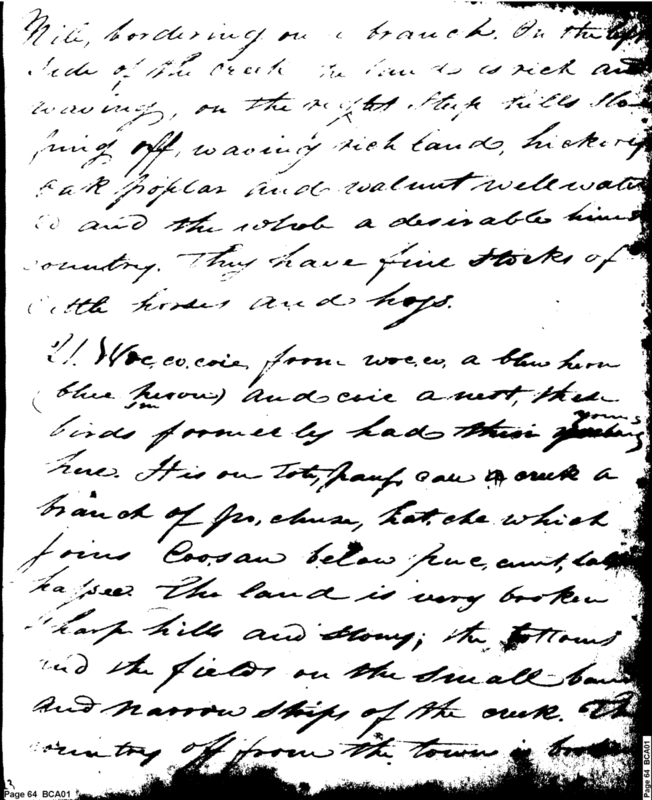 Mile, bordering on a branch. On the left
side of the creek the lands is rich and
waving, on the right steep hills slo
ping off, waving rich land, hickory
oak poplar and walnut well water
ed and the whole a desirable
country. They have fine stocks of
cattle horses and hogs.
21. Woc,co,coie, from woc,co, a blew hern
(blue heron) and coie a nest, these
birds formerly had their young
here. It is on Tote,pauf,cau a creek a
branch of po,chuse,hat,che which
joins Coosau below puc,cunt,tal
hassee. The land is very broken
sharp hills and stony; the bottoms
and the fields on the small
and narrow strips of the creek. The
country off from the town is broken
Page 64 BCA01
Page 64 BCA01